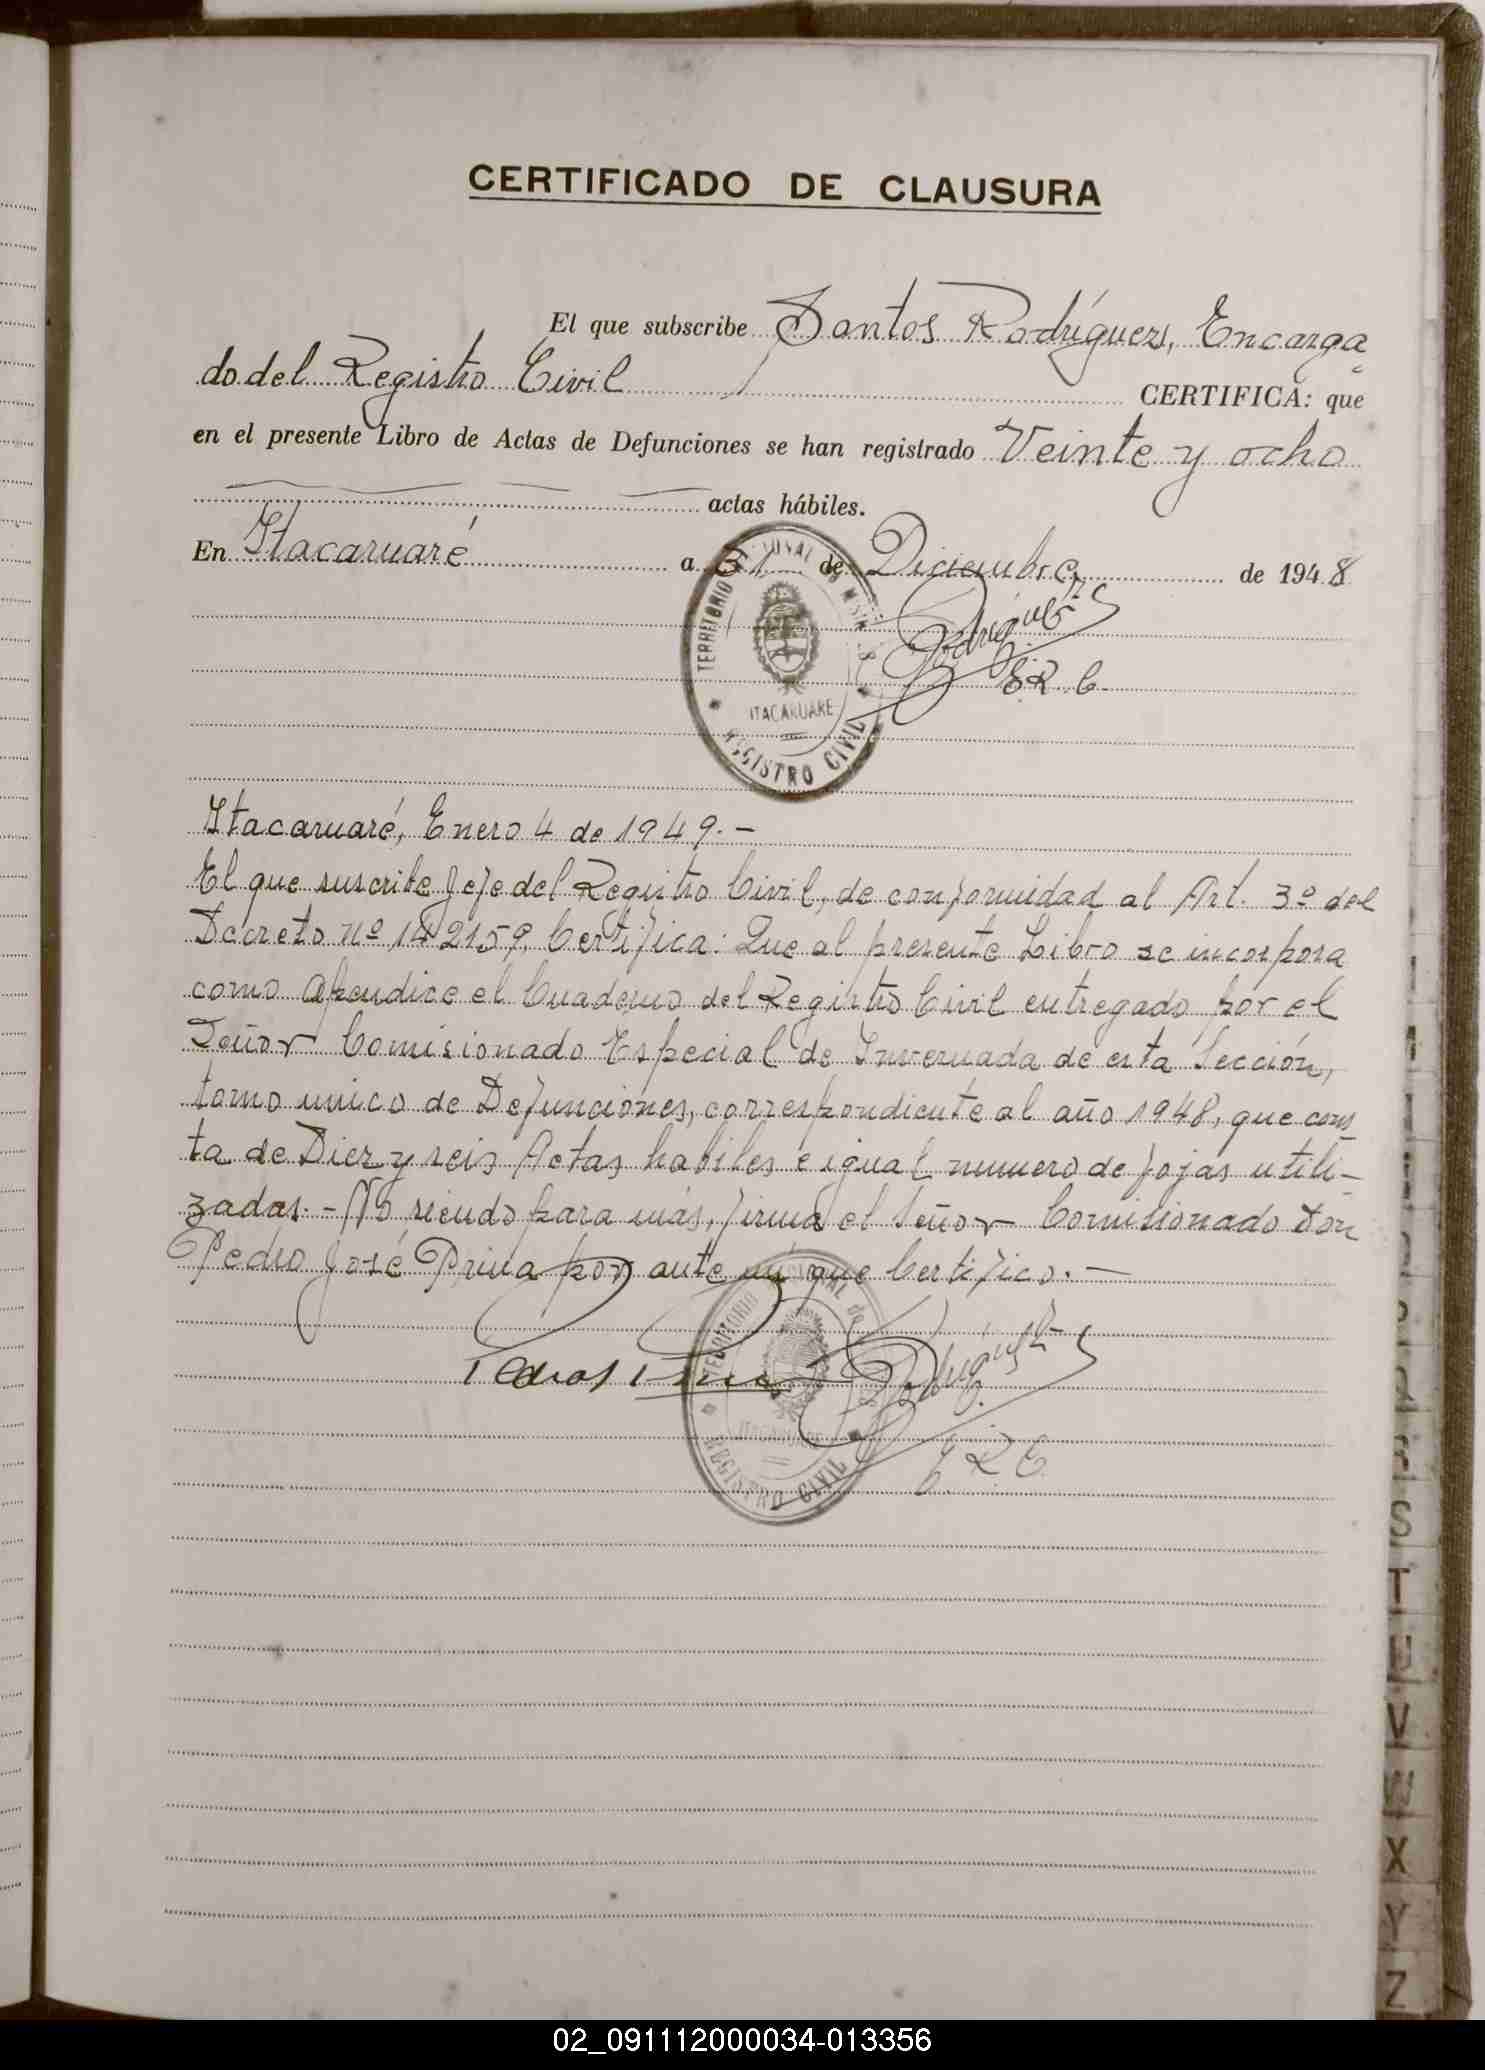 CERTIFICADO DE CLAUSURA
El que subscribe Santos Rodríguez, Encarga
do del Registro Civil CERTIFICA: que
en el presente Libro de Actas de Defunciones se han registrado Veinte y ocho
actas hábiles.
En Itacaruaré a 31 de Diciembre de 1948
TERRITORIO NACIONAL DE MISIONES
Rodríguez
E. R. C.
ITACARUARE
REGISTRO CIVIL
Itacaruaré, Enero 4 de 1949.-
El que suscribe Jefe del Registro Civil, de conformidad al Art. 3º del
Decreto Nº 142159, Certifica: Que al presente Libro se incorpora
como Apendice el Cuaderno del Registro Civil entregado por el
Señor Comisionado Especial de Invernada de esta Sección,
tomo unico de Defunciones, correspondiente al año 1948, que cons
ta de Diez y seis Actas habiles e igual numero de fojas utili-
zadas.- No siendo para más, firma el Señor Comisionado Don
Pedro José Prina por ante mi que Certifico.-
TERRITORIO NACIONAL de
Rodríguez
ITACARUARE
REGISTRO CIVIL
S
T
U
V
W
X
Y
Z
02_091112000034-013356